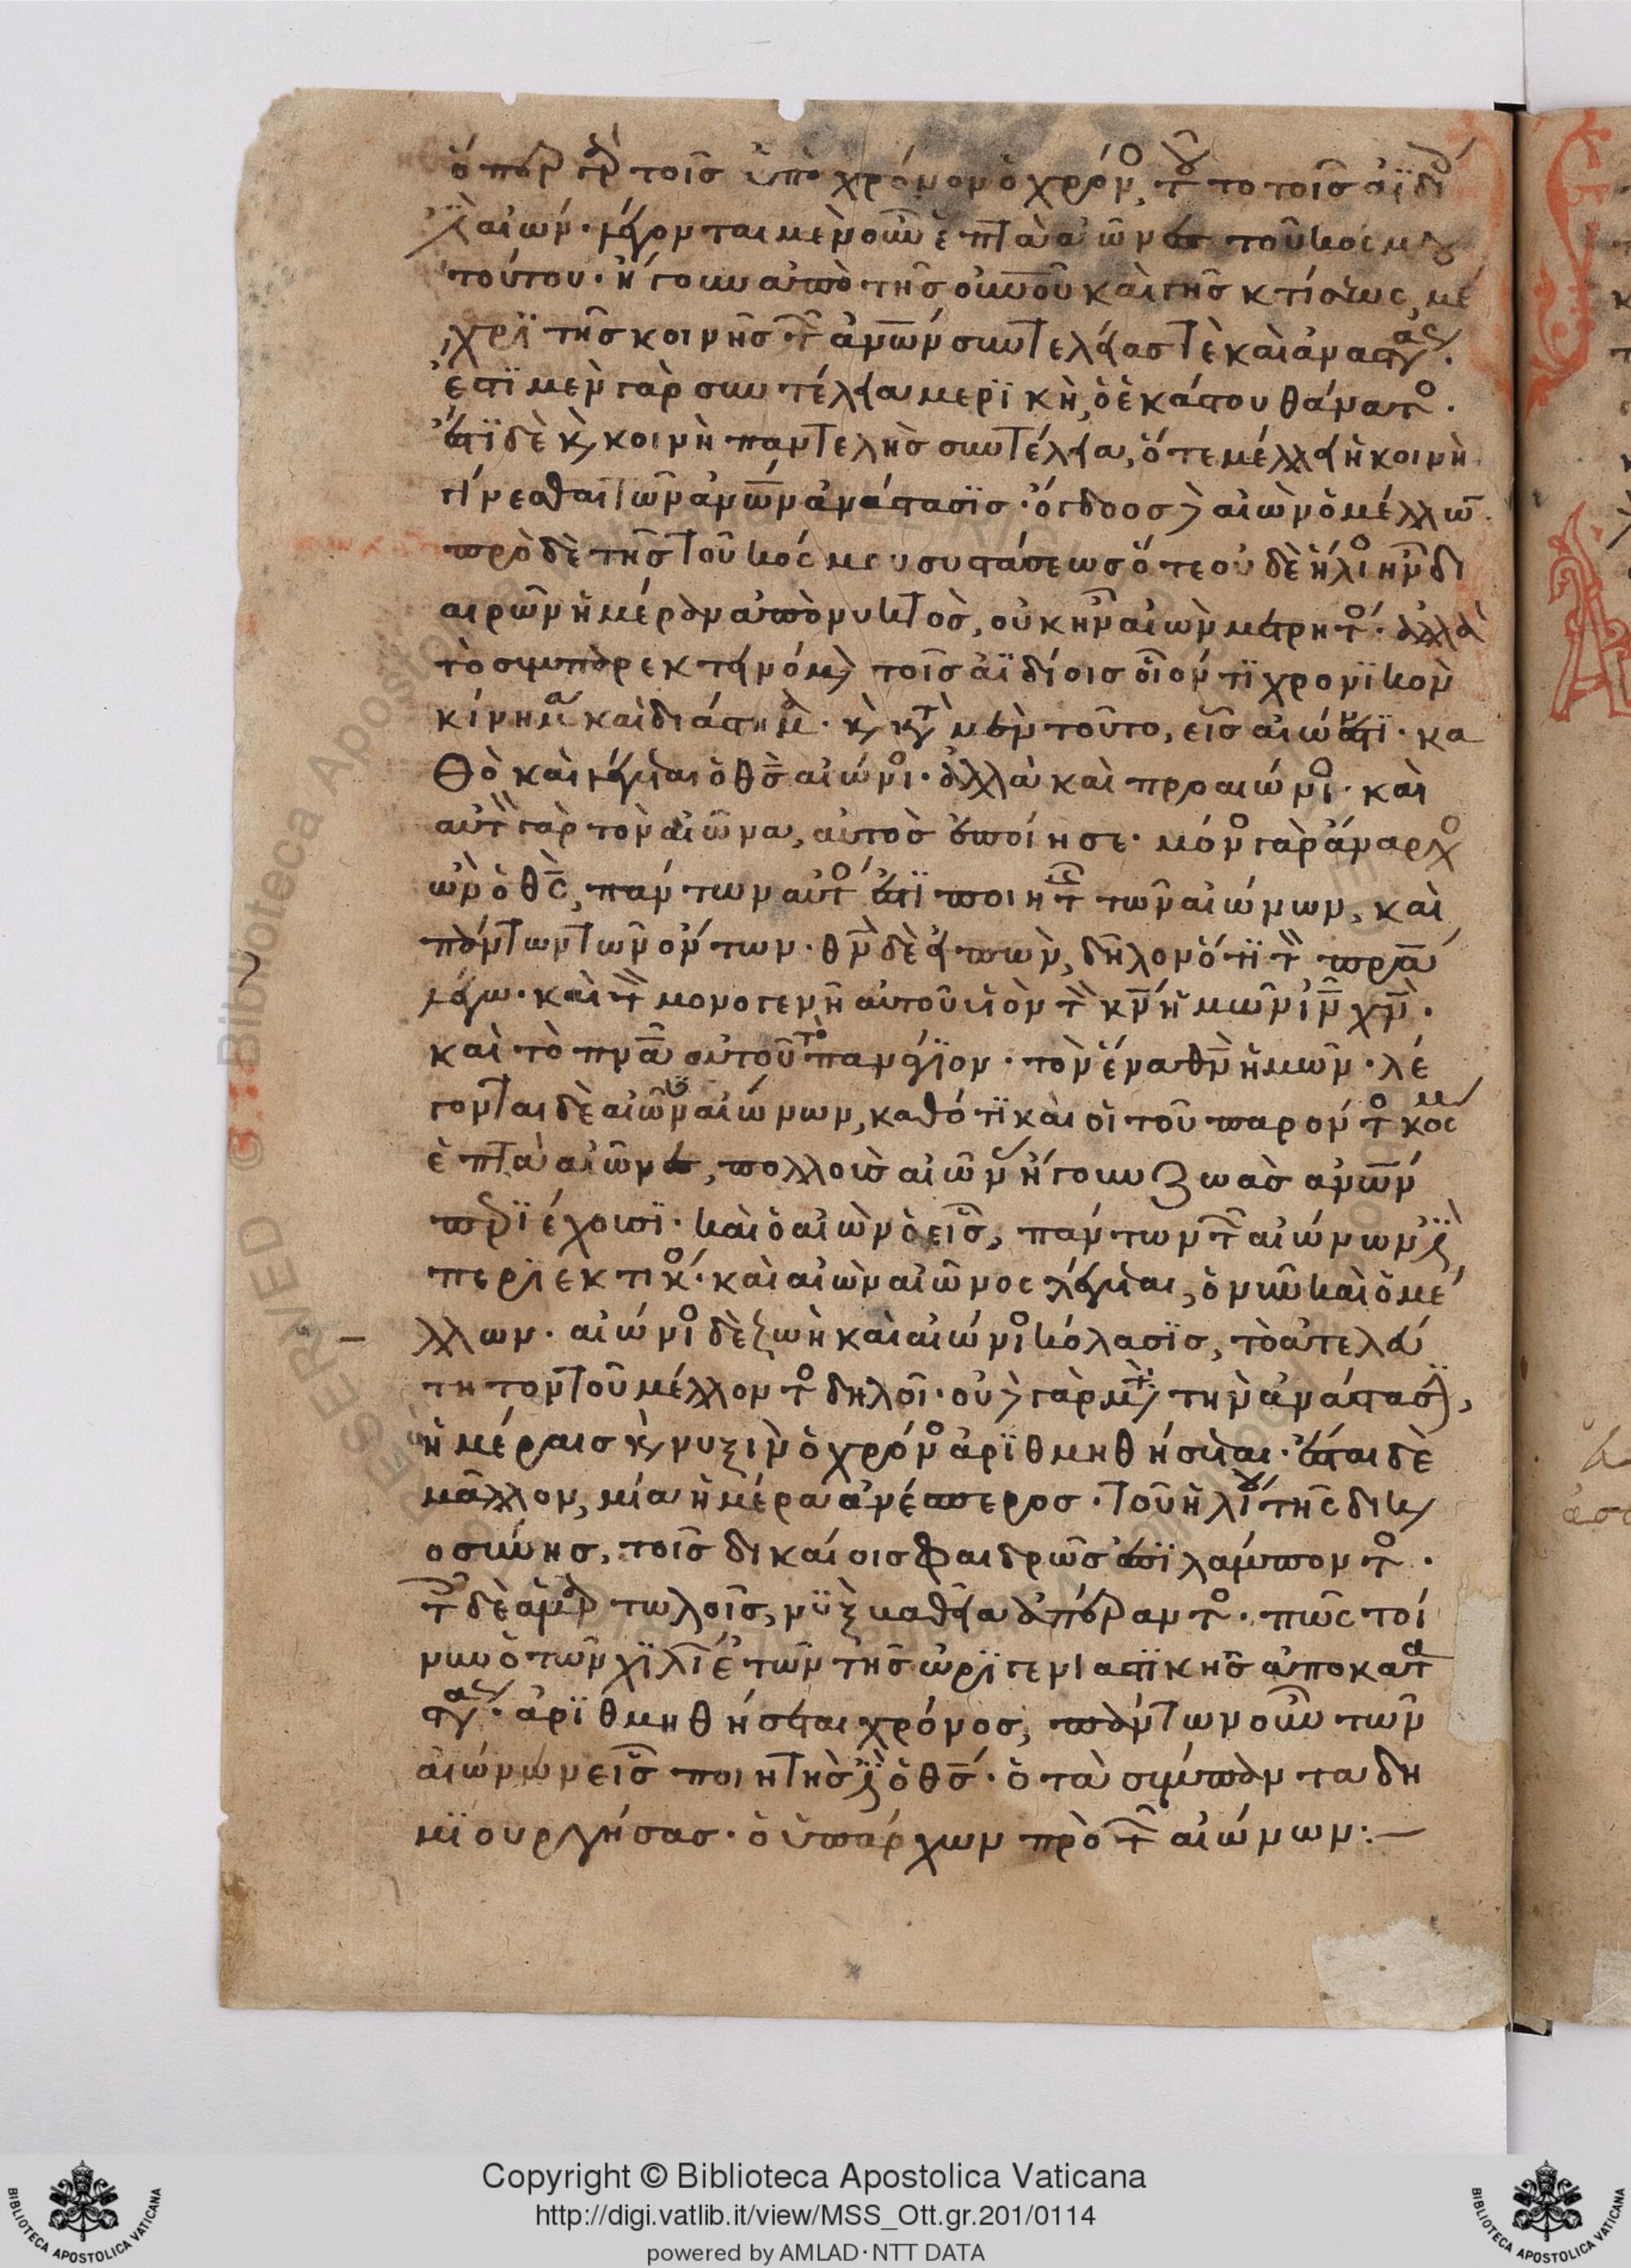 ὅπερ γὰρ τοῖς ὑπὸ χρόνον ὁ χρόνος, τοῦτο τοῖς ἀϊδίοις
ἐστὶν αἰών· λέγονται μὲν οὖν ἑπτὰ αἰῶνες τοῦ κόσμου
τούτου· ἤγουν ἀπὸ τῆς οὐνοῦ καὶ γῆς κτίσεως, μέ
χρϊ τῆς κοινῆς τῶν ἀνων συντελείας τὲ καὶ ἀναστάσεως·
ἔστϊ μὲν γὰρ συντέλεια μερϊκὴ, ὁ ἑκάστου θάνατος·
ἔστϊ δὲ καὶ κοινὴ παντελὴς συντέλεια, ὅτε μέλλει ἡ κοινὴ
γίνεσθαι τῶν ἀνων ἀνάστασϊς· ὄγδοος δὲ αἰὼν ὁ μέλλων
πρὸ δὲ τῆς τοῦ κόσμου συστάσεως ὅτε οὐδὲ ἥλιος ἦν δι
αιρῶν ἡμέραν ἀπὸ νυκτὸς, οὐκ ἦν αἰὼν μετρητός· ἀλλὰ
τὸ συμπαρεκτεινόμενον τοῖς ἀϊδίοις οἷόν τϊ χρονϊκὸν
κίνημα καὶ διάστημα· καὶ κατὰ μὲν τοῦτο, εἷς αἰών ἐστϊ· κα
θὸ καὶ λέγεται ὁ θς αἰώνιος· ἀλλὰ καὶ προαιώνιος· καὶ
αὐτὸν γὰρ τὸν αἰῶνα, αὐτὸς ἐποίησε· μόνος γὰρ ἄναρχος
ὢν ὁ θς, πάντων αὐτός ἐστϊ ποιητὴς τῶν αἰώνων, καὶ
πάντων τῶν ὄντων· θν δὲ εἰπὼν, δῆλον ὅτϊ τὸν πρα
λέγω· καὶ τὸν μονογενῆ αὐτοῦ υἱὸν τὸν κν ἡμῶν ιν χν·
καὶ τὸ πνα αὐτοῦ τὸ πανάγϊον· τὸν ἕνα θν ἡμῶν· λέ
γονται δὲ αἰῶνες αἰώνων, καθότϊ καὶ οἱ τοῦ παρόντος κόσμου
ἑπτὰ αἰῶνες, πολλοὺς αἰῶνας ἤγουν ζωὰς ἀνων
περϊέχουσϊ· καὶ ὁ αἰὼν ὁ εἷς, πάντων τῶν αἰώνων ἐστὶ
περϊεκτικός· καὶ αἰὼν αἰῶνος λέγεται, ὁ νῦν καὶ ὁ μέ
λλων· αἰώνιος δὲ ζωὴ καὶ αἰώνιος κόλασϊς, τὸ ἀτελεύ
τητον τοῦ μέλλοντος δηλοῖ· οὐδὲ γὰρ μετὰ τὴν ἀνάστασϊν,
ἡμέραις καὶ νυξὶν ὁ χρόνος ἀρϊθμηθήσεται· ἔσται δὲ
μᾶλλον, μία ἡμέρα ἀνέσπερος· τοῦ ἡλίου τῆς δικαι
οσύνης, τοῖς δικαίοις φαιδρῶς ἐπϊλάμποντος·
τοῖς δὲ ἁμαρτωλοῖς, νὺξ βαθεῖα ἀπέραντος· πῶς τοί
νυν ὁ τῶν χϊλίων ἐτῶν τῆς ὠρϊγενιαστϊκῆς ἀποκατα
στάσεως ἀρϊθμηθήσεται χρόνος, πάντων οὖν τῶν
αἰώνων εἷς ποιητής ἐστιν ὁ θς· ὁ τὰ σύμπαντα δη
μϊουργήσας· ὁ ὑπάρχων πρὸ τῶν αἰώνων:—
Copyright © Biblioteca Apostolica Vaticana
http://digi.vatlib.it/view/MSS_Ott.gr.201/0114
powered by AMLAD·NTT DATA